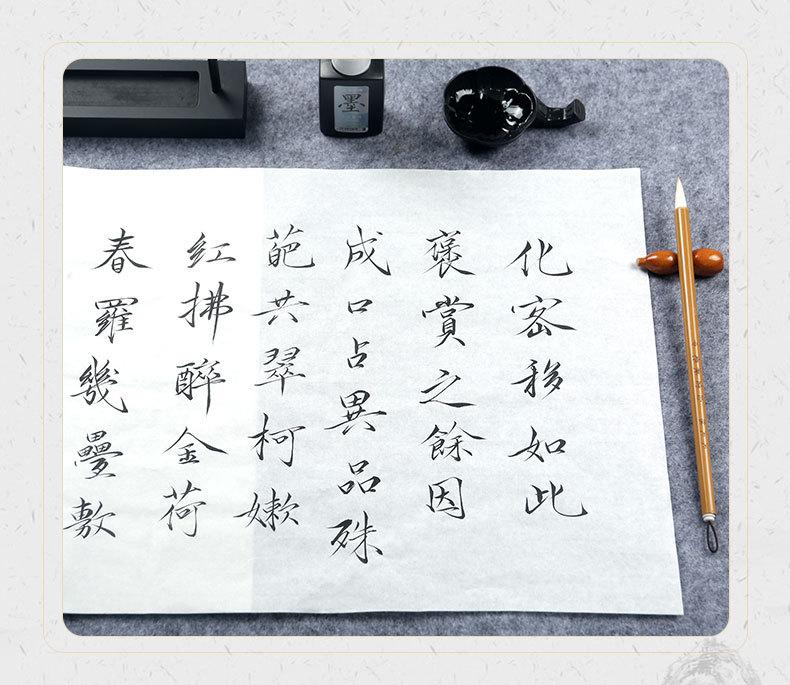 墨
化密移如此
褒賞之餘因
成口占異品殊
葩共翠柯嫩
紅拂醉金荷
春羅幾疊敷